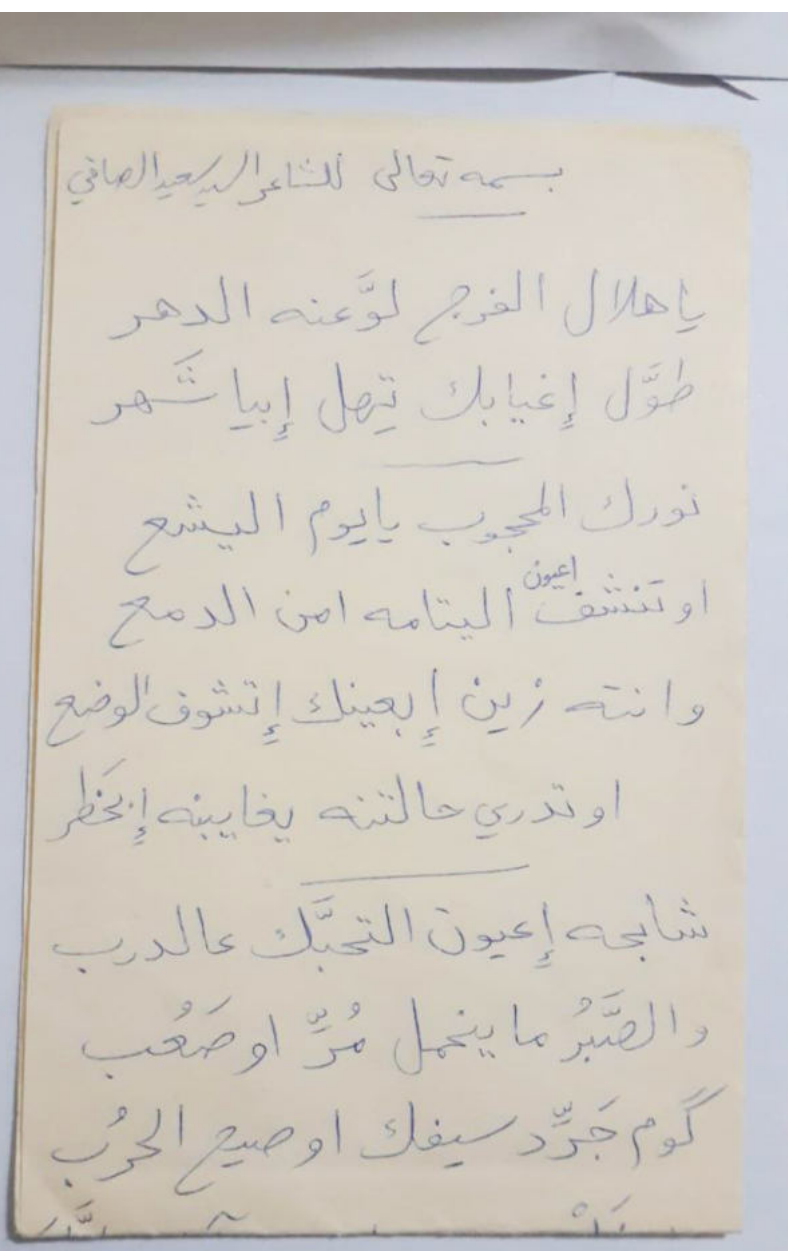 بسمه تعالى للشاعر السيد سعيد الصافي
ياهلال الفرج لوَّعنه الدهر
طوَّل إغيابك تِهل إبيا شَهر
نورك المحجوب يايوم اليشع
او تنشف اعيون اليتامه امن الدمع
وانته زين إبعينك إتشوف الوضع
اوتدري حالتنه يغايبنه إبخَطر
شابحه إعيون التحبَّك عالدرب
والصَّبرُ ماينحمل مُرِّ اوصَعُب
گوم جَرِّد سيفك اوصيح الحرُب